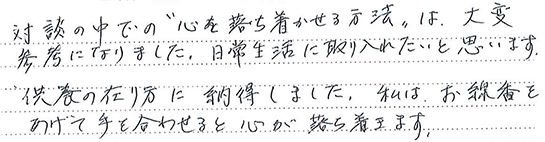 対談の中での"心を落ち着かせる方法"は、大変
参考になりました。日常生活に取り入れたいと思います。
供養の在り方に納得しました。私は、お線香を
あげて手を合わせると心が落ち着きます。